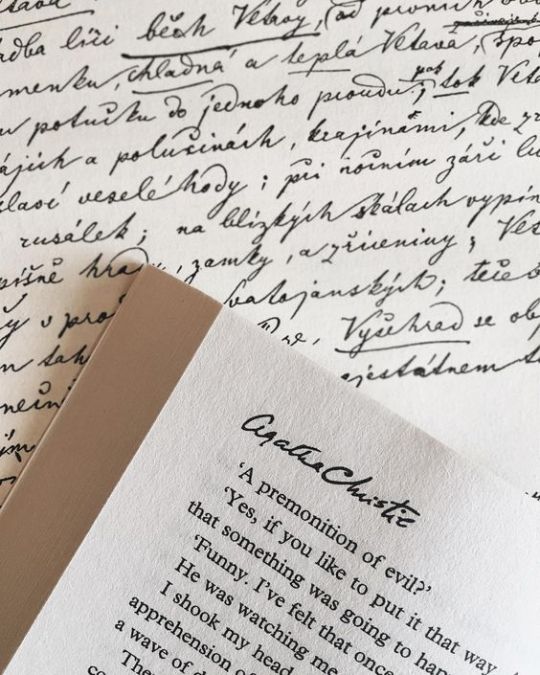 adba líčí běh Vltavy, od prvních
menku, chladná a teplá Vltava, spo
u potučku do jednoho proudu; pak tok Vlta
ájích a polučinách, krajinámi, kde zr
slaví veselé hody; při nočním záři lu
rusálek; na blízkých skálach vypín
pišně hra zámky, a zříceniny; Vl
v pro vatojanských; teče
Vyšehrad se ob
tak ajestátnem
Agatha Christie
'A premonition of evil?'
'Yes, if you like to put it that way
that something was going to hap
'Funny. I've felt that once
He was watching me
I shook my head
apprehension of
a wave of d
The
co